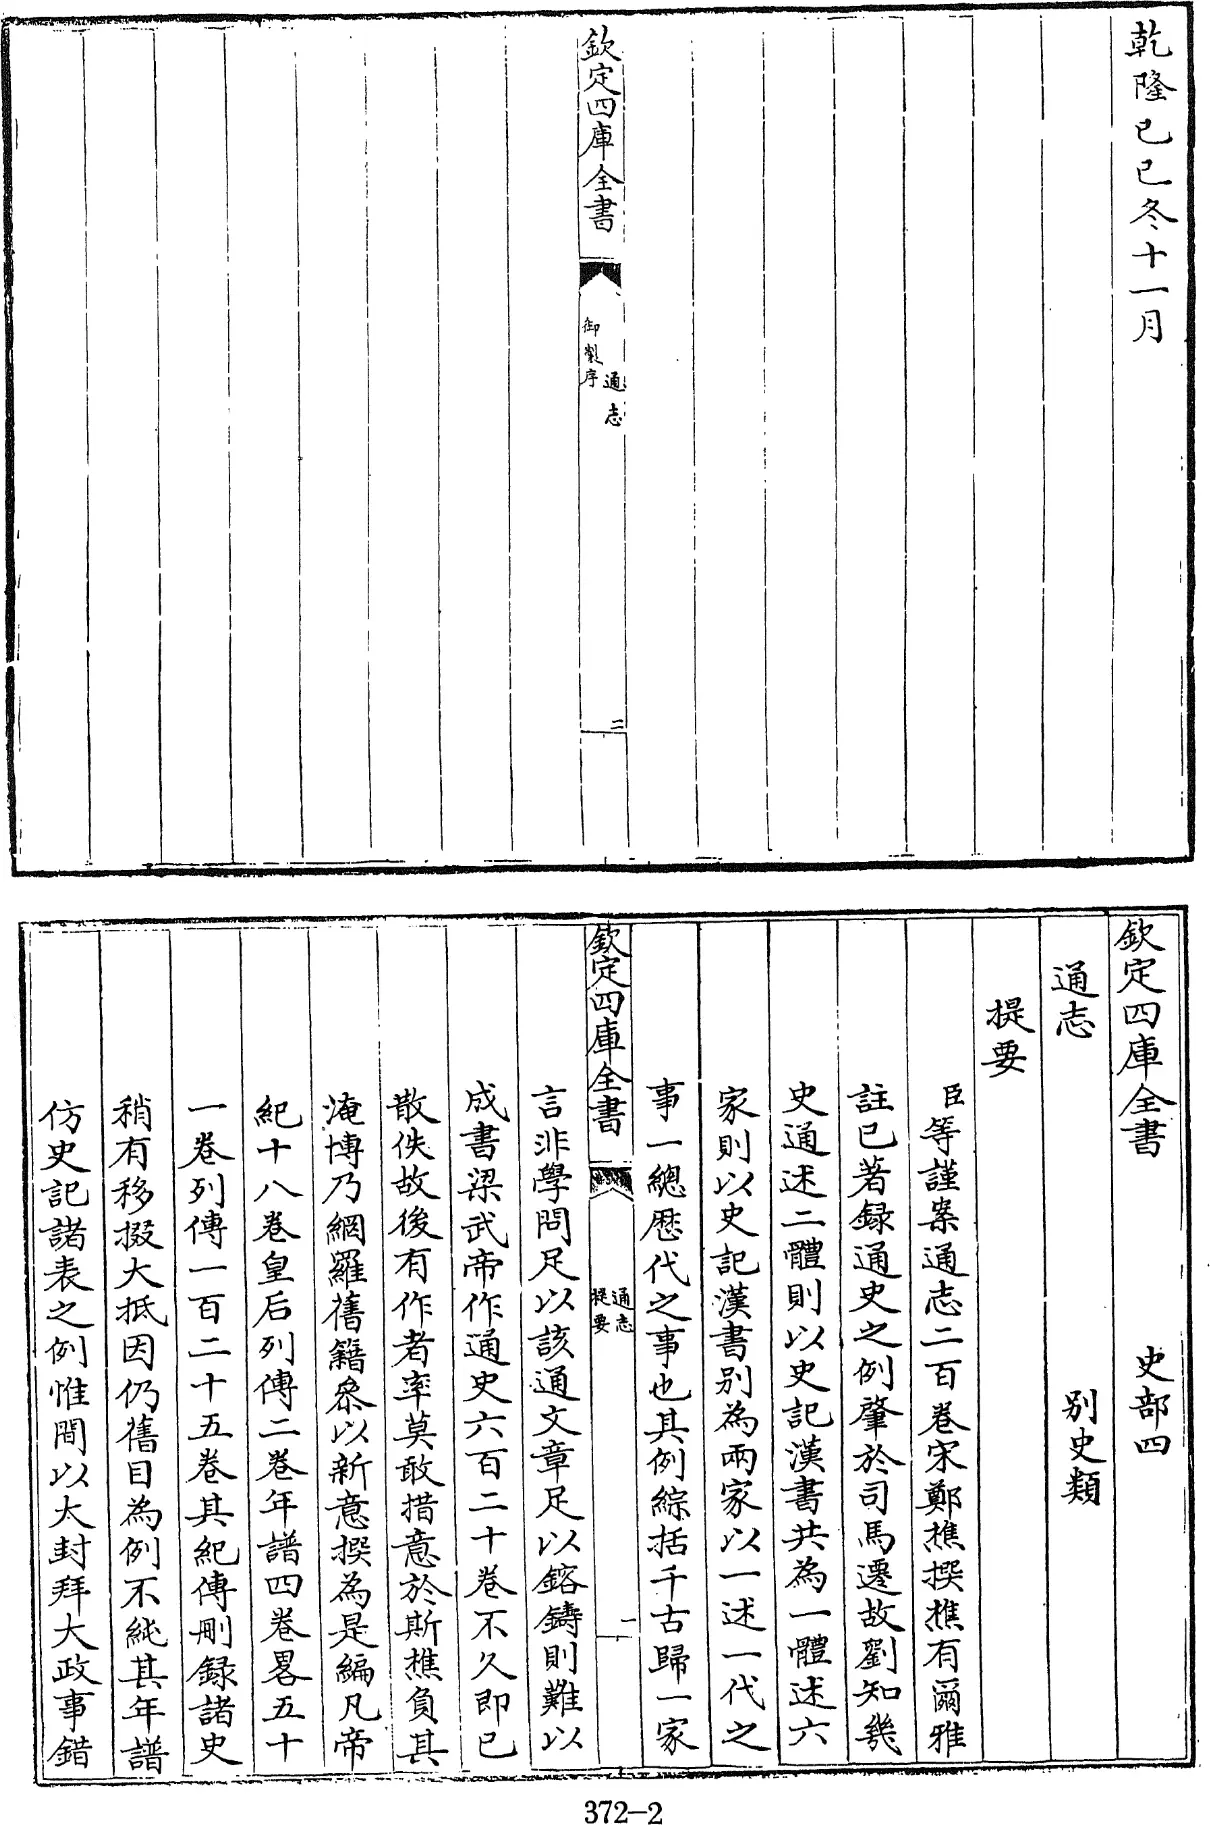 乾隆已已冬十一月
欽定四庫全書
通志
御製序
二
欽定四庫全書
史部四
通志
別史類
提要
臣等謹案通志二百卷宋鄭樵撰樵有爾雅
註已著録通史之例肇於司馬遷故劉知幾
史通述二體則以史記漢書共為一體述六
家則以史記漢書別為兩家以一述一代之
事一總歴代之事也其例綜括千古歸一家
欽定四庫全書
通志
提要
一
言非學問足以該通文章足以鎔鑄則難以
成書梁武帝作通史六百二十卷不久即已
散佚故後有作者率莫敢措意於斯樵負其
淹博乃網羅舊籍叅以新意撰為是編凡帝
紀十八卷皇后列傳二卷年譜四卷畧五十
一卷列傳一百二十五卷其紀傳刪録諸史
稍有移掇大抵因仍舊目為例不純其年譜
仿史記諸表之例惟間以大封拜大政事錯
372-2